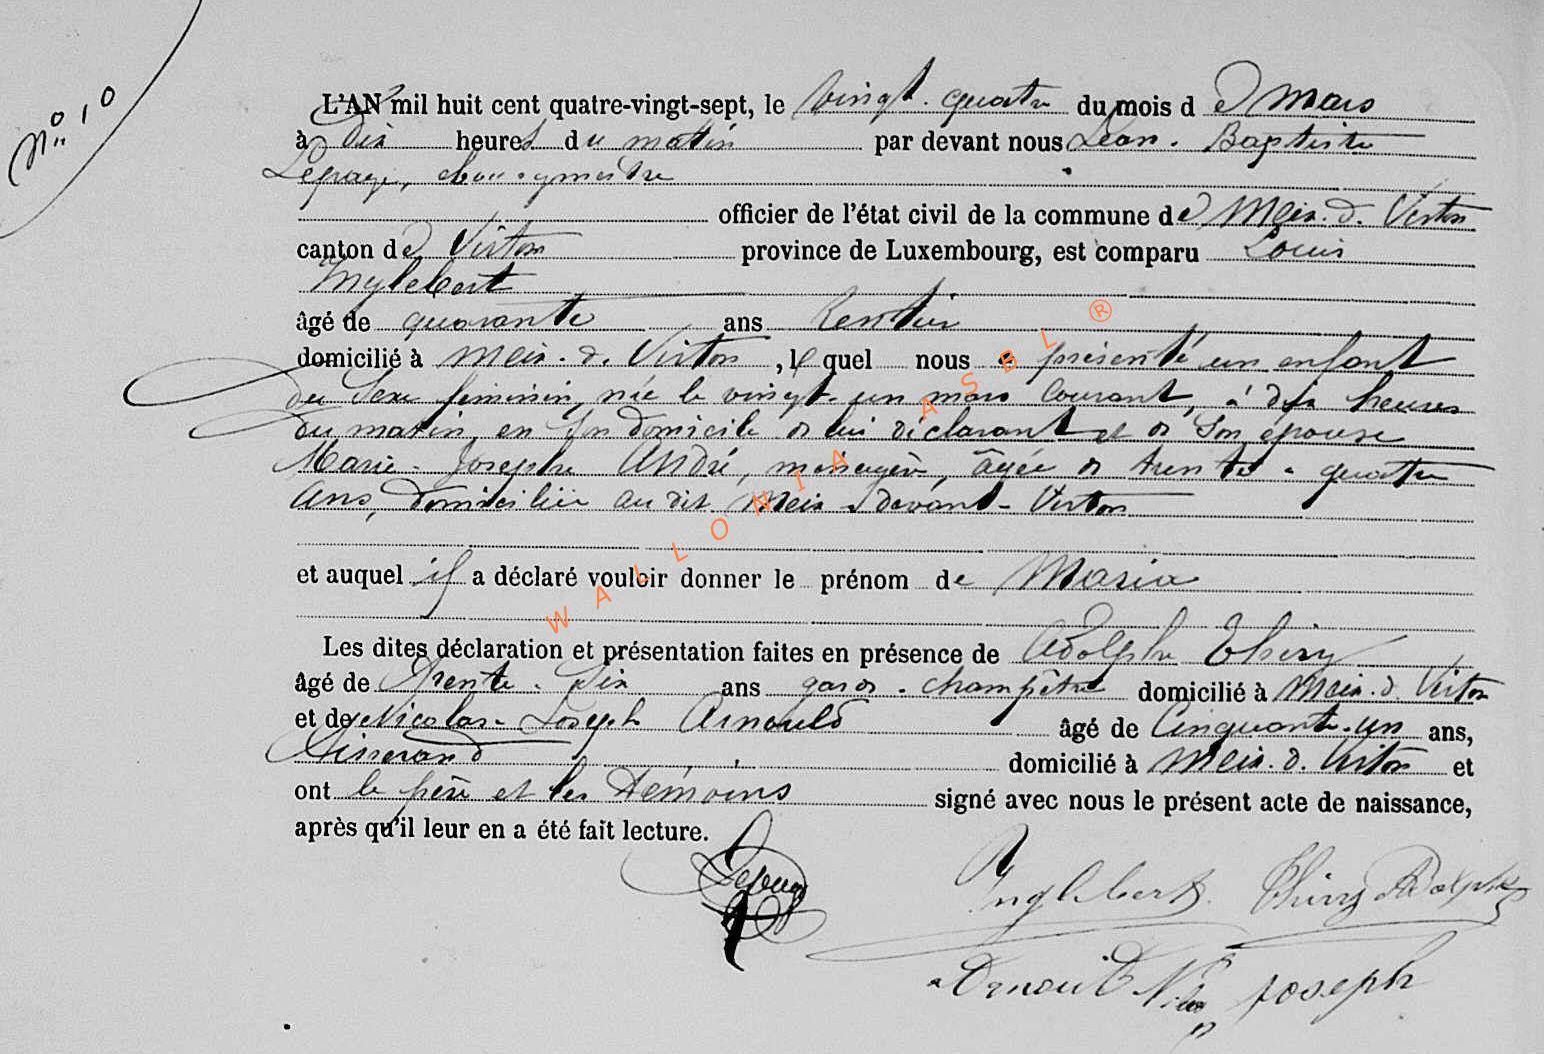 N° 10
L'AN mil huit cent quatre-vingt-sept, le vingt-quatre du mois de Mars
à dix heures du matin par devant nous Jean-Baptiste
Lepage, bourgmestre
officier de l'état civil de la commune de Meix-d-Virton
canton de Virton province de Luxembourg, est comparu Louis
Inglebert
âgé de quarante ans Rentier
domicilié à Meix-d-Virton, lequel nous a présenté un enfant
du Sexe féminin, née le vingt-un mars Courant, à dix heures
du matin, en son domicile de lui déclarant et de Son épouse
Marie-Josephe André, ménagère, âgée de trente-quatre
ans, domiciliée au dit Meix-devant-Virton
et auquel il a déclaré vouloir donner le prénom de Maria
Les dites déclaration et présentation faites en présence de Adolphe Thiry
âgé de trente-six ans garde-champêtre domicilié à Meix-d-Virton
et de Nicolas-Joseph Arnould âgé de Cinquante-un ans,
Tisserand domicilié à Meix-d-Virton et
ont le père et les témoins signé avec nous le présent acte de naissance,
après qu'il leur en a été fait lecture.
Lepage Inglebert Thiry Adolphe
Joseph
WALLONIA ASBL ®